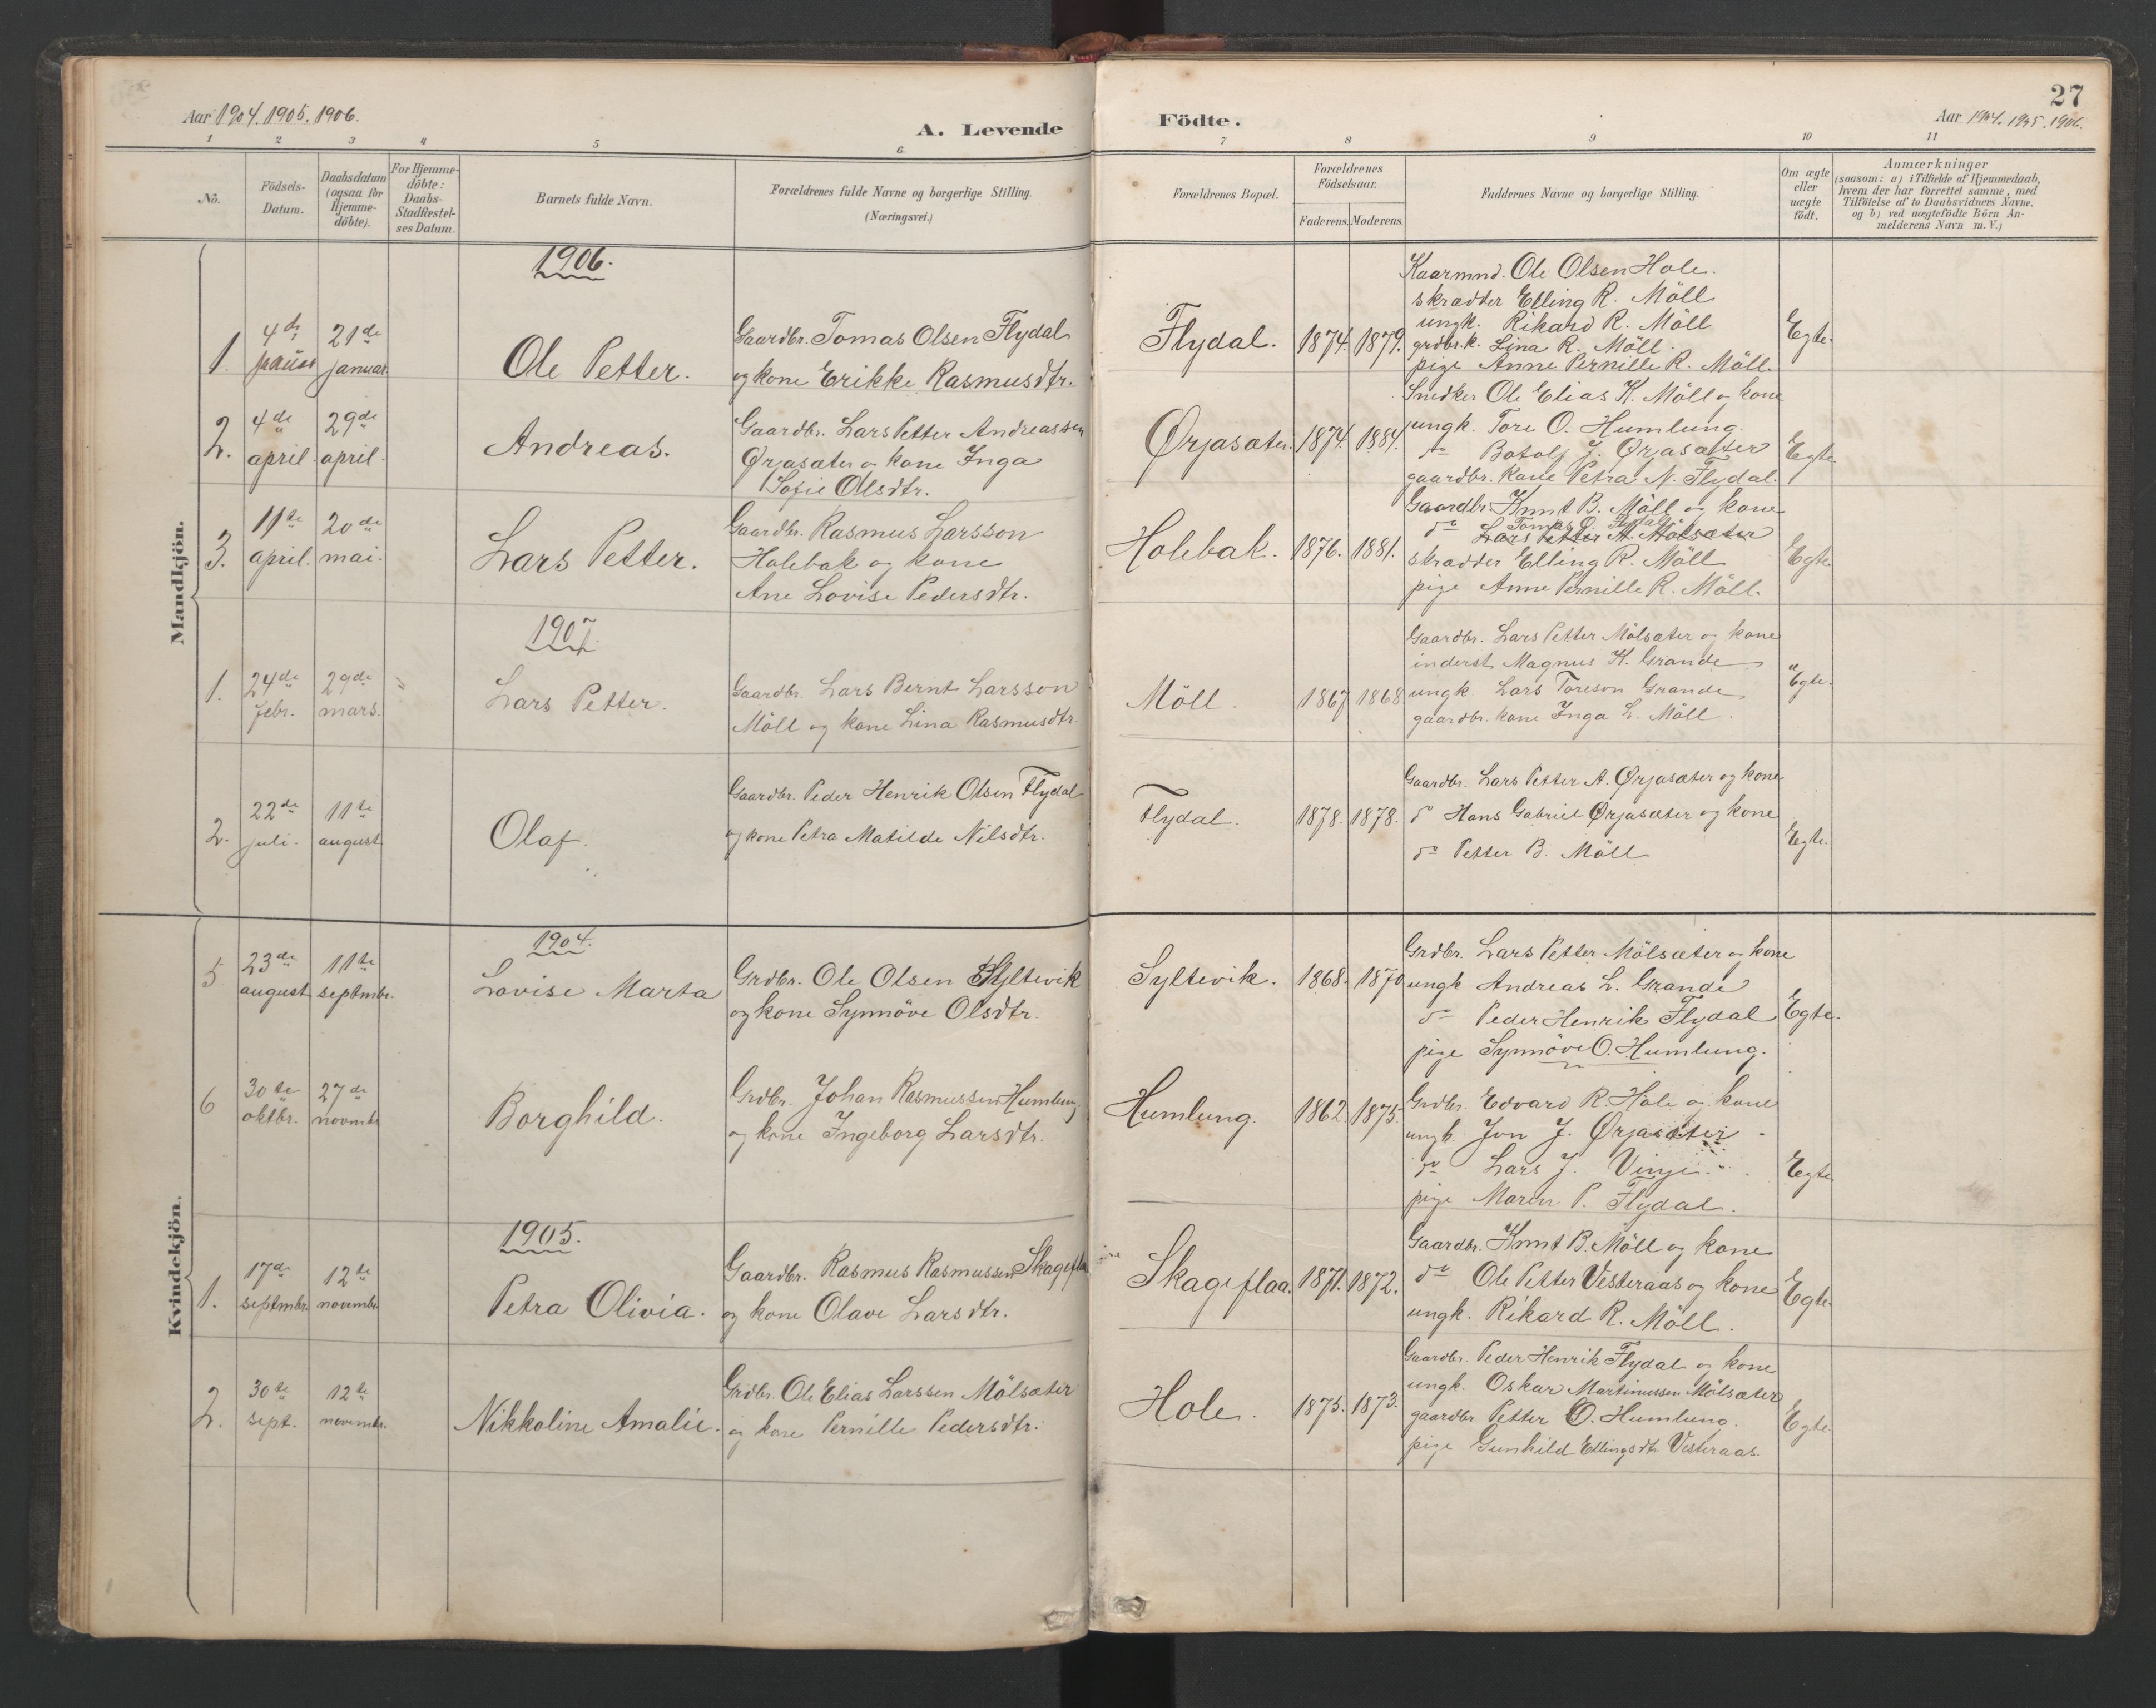 27
Aar 1904. 1905. 1906.
A. Levende
Födte.
Aar 1904. 1905. 1906.
1 2 3 4 5 6. 7 8 9 10 11
Nô.
Födsels-
Datum.
Daabsdatum
(ogsaa for
Hjemme-
döbte).
For Hjemme-
döbte:
Daabs-
Stadfæstel-
ses Datum.
Barnets fulde Navn.
Forældrenes fulde Navne og borgerlige Stilling.
(Næringsvei.)
Forældrenes Bopæl.
Forældrenes
Födselsaar.
Faderens. Moderens.
Faddernes Navne og borgerlige Stilling.
Om ægte
eller
uægte
födt.
Anmærkninger
(saasom: a) i Tilfælde af Hjemmedaab,
hvem der har forrettet samme, med
Tilföielse af to Daabsvidners Navne,
og b) ved uægtefödte Börn An-
melderens Navn m. V.)
Mandkjön.
1906.
1.
4de
januar
21de
januar
Ole Petter.
Gaardbr. Tomas Olsen Flydal
og kone Erikke Rasmusdtr.
Flydal.
1874. 1879.
Kaarmnd. Ole Olsen Hole.
skrædder Elling R. Möll
ungk. Rikard R. Möll
grdbr.k. Lina R. Möll.
pige Anne Pernille R. Möll.
Egte.
2.
4de
april.
29de
april.
Andreas.
Gaardbr. Lars Petter Andreassen
Ørjasæter og kone Inga
Sofie Olsdtr.
Ørjasæter.
1874. 1884.
Snedker Ole Elias K. Möll og kone
ungk. Tore O. Humlung.
do Botolf J. Ørjasæter
gaardbr. kone Petra N. Flydal.
Egte.
3.
11te
april.
20de
mai.
Lars Petter.
Gaardbr. Rasmus Larsson
Holebak og kone
Ane Lovise Pedersdtr.
Holebak.
1876. 1881.
Gaardbr. Knut B. Möll og kone
Tomas O. Flydal
do Lars Petter M. Mölsæter
skrædder Elling R. Möll
pige Anne Pernille R. Möll.
Egte.
1907.
1.
24de
febr.
29de
mars.
"
Lars Petter.
Gaardbr. Lars Bernt Larsson
Möll og kone Lina Rasmusdtr.
Möll.
1867 1868
Gaardbr. Lars Petter Mölsæter og kone
inderst Magnus K. Grande
ungk. Lars Toreson Grande
gaardbr. kone Inga L. Möll.
Egte.
2.
22de
juli.
11te
august
Olaf.
Gaardbr. Peder Henrik Olsen Flydal
og kone Petra Matilde Nilsdtr.
Flydal.
1878. 1878.
Gaardbr. Lars Petter A. Ørjasæter og kone
do Hans Gabriel Ørjasæter og kone
do Petter B. Möll
Egte.
Kvindekjön.
1904.
5
23de
august
11te
septmbr.
Lovise Marta
Grdbr. Ole Olsen Syltevik
og kone Synnöve Olsdtr.
Syltevik.
1868. 1870
Grdbr. Lars Petter Mölsæter og kone
ungk Andreas L. Grande
do Peder Henrik Flydal
pige Synnöve O. Humlung.
Egte.
6
30te
oktbr.
27de
novmbr
Borghild.
Grdbr. Johan Rasmussen Humlung
og kone Ingeborg Larsdtr.
Humlung.
1862. 1875.
Grdbr. Edvard R. Hole og kone
ungk. Jon J. Ørjasæter
do Lars J. Vinje
pige Maren P. Flydal.
Egte
1905.
1.
17de
septmbr.
12te
novembr.
Petra Olivia.
Gaardbr. Rasmus Rasmussen Skageflaa
og kone Olave Larsdtr.
Skageflaa.
1871. 1872.
Gaardbr. Knut B. Möll og kone
do Ole Petter Vesteraas og kone
ungk. Rikard R. Möll.
Egte.
2.
30te
sept.
12te
novembr.
Nikkoline Amalie.
Grdbr. Ole Elias Larssen Mölsæter
og kone Pernille Pedersdtr.
Hole.
1875. 1873.
Gaardbr. Peder Henrik Flydal og kone
ungk. Oskar Martinussen Mölsæter
gaardbr. Petter O. Humlung.
pige Gunhild Ellingsdtr. Vesteraas.
Egte.